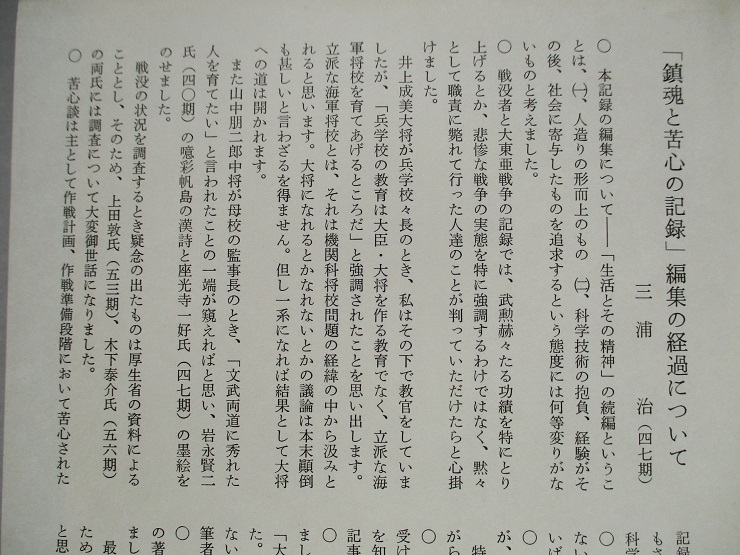 「鎮魂と苦心の記録」編集の経過について
三浦 治（四七期）
○ 本記録の編集について――「生活とその精神」の続編というこ
とは、㈠、人造りの形而上のもの ㈡、科学技術の抱負、経験がそ
の後、社会に寄与したものを追求するという態度には何等変りがな
いものと考えました。
○ 戦没者と大東亜戦争の記録では、武勲赫々たる功績を特にとり
上げるとか、悲惨な戦争の実態を特に強調するわけではなく、黙々
として職責に斃れて行った人達のことが判っていただけたらと心掛
けました。
井上成美大将が兵学校々長のとき、私はその下で教官をしていま
したが、「兵学校の教育は大臣・大将を作る教育でなく、立派な海
軍将校を育てあげるところだ」と強調されたことを思い出します。
立派な海軍将校とは、それは機関科将校問題の経緯の中から汲みと
れると思います。大将になれるとかなれないとかの議論は本末顚倒
も甚しいと言わざるを得ません。但し一系になれば結果として大将
への道は開かれます。
また山中朋二郎中将が母校の監事長のとき、「文武両道に秀れた
人を育てたい」と言われたことの一端が窺えればと思い、岩永賢二
氏（四〇期）の噫彩帆島の漢詩と座光寺一好氏（四七期）の墨絵を
のせました。
戦没の状況を調査するとき疑念の出たものは厚生省の資料による
こととし、そのため、上田敦氏（五三期）、木下泰介氏（五六期）
の両氏には調査について大変御世話になりました。
○ 苦心談は主として作戦計画、作戦準備段階において苦心された
記録
もさ
科学
ない
いば
○
が、
特
がら
○
受け
を知
記事
○
まし
「大
た。
ない
筆者
○
の著
まし
最
ため
と思